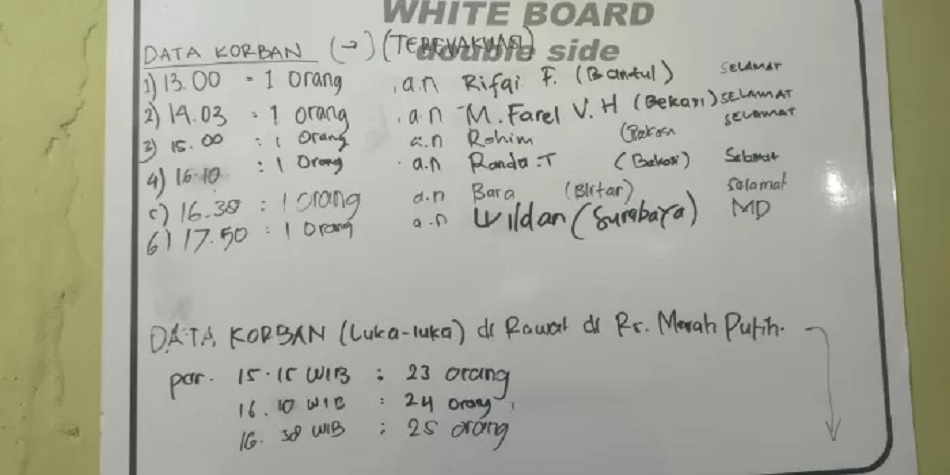 WHITE BOARD
double side
DATA KORBAN (→) (TEREVAKUASI)
1) 13.00 = 1 Orang a.n Rifai F. (Bantul) SELAMAT
2) 14.03 : 1 Orang a.n M. Farel V. H (Bekasi) SELAMAT
3) 15.00 : 1 Orang a.n Rohim (Bekasi SELAMAT
4) 16.10 : 1 Orang a.n Randa.T (Bekasi) Selamat
5) 16.30 : 1 Orang a.n Bara (Blitar) Selamat
6) 17.50 : 1 Orang a.n Wildan (Surabaya) MD
DATA KORBAN (Luka-luka) di Rawat di Rs. Merah Putih.
par. 15.15 WIB : 23 orang
16.10 WIB : 24 orang
16.30 WIB : 25 orang